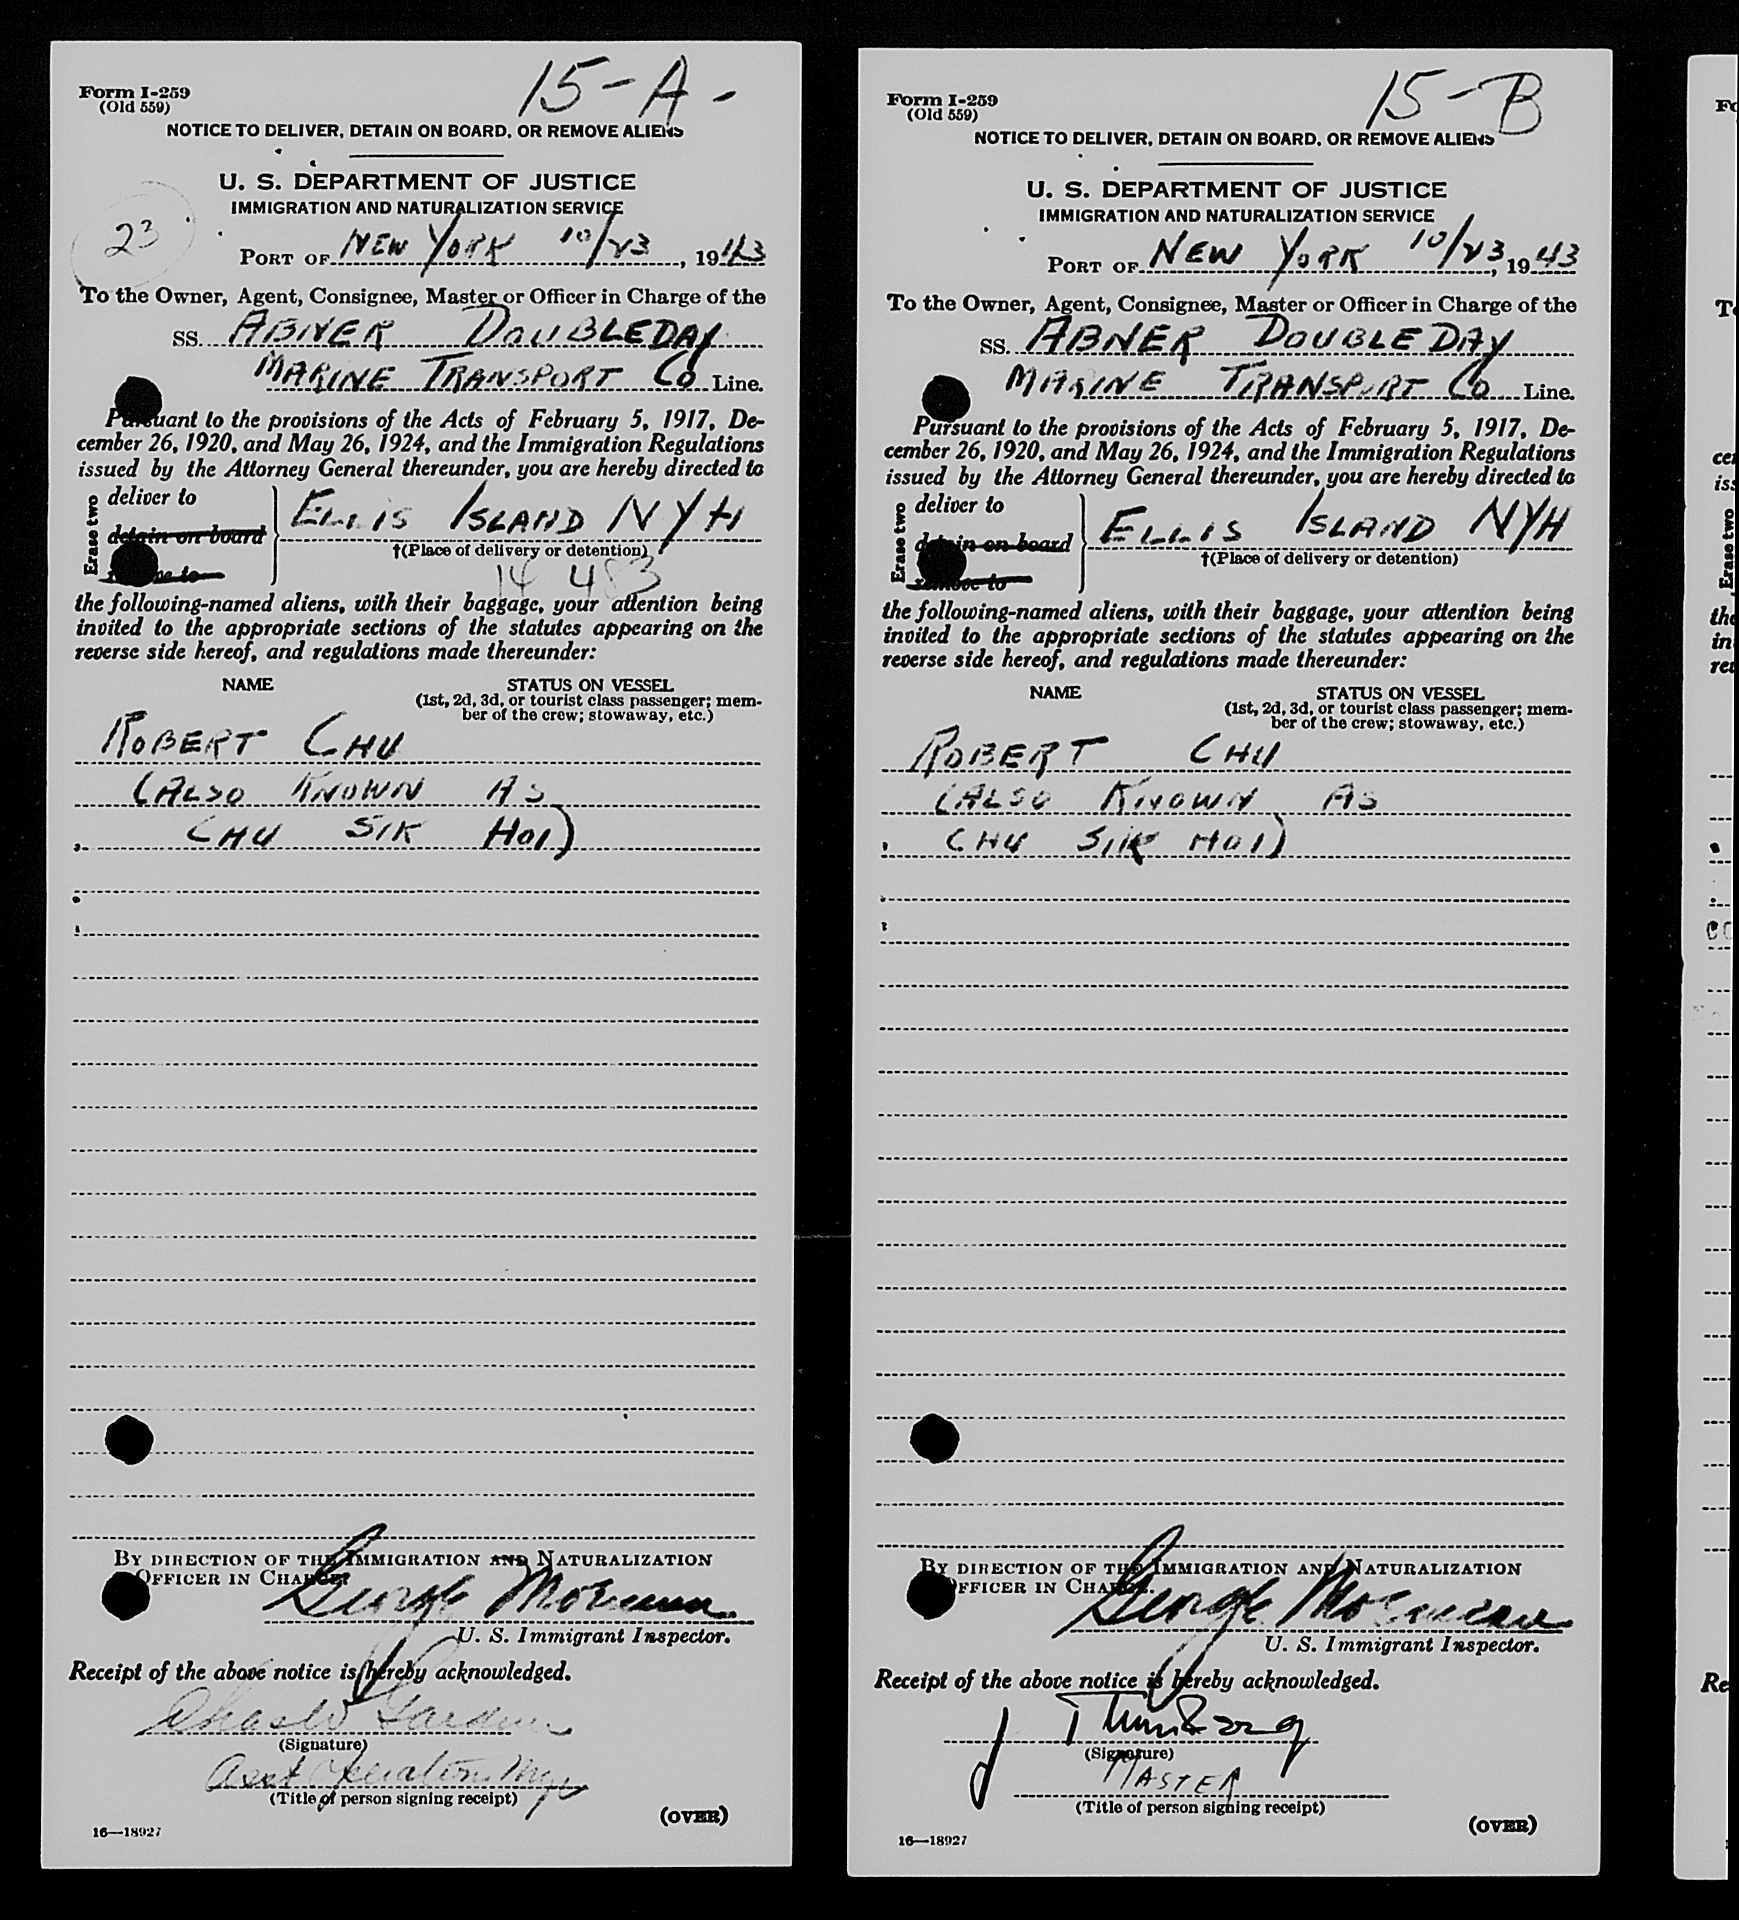 Form I-259
(Old 559)
15-A-
NOTICE TO DELIVER, DETAIN ON BOARD, OR REMOVE ALIENS
U. S. DEPARTMENT OF JUSTICE
IMMIGRATION AND NATURALIZATION SERVICE
23
PORT OF NEW YORK 10/23, 1943
To the Owner, Agent, Consignee, Master or Officer in Charge of the
SS. ABNER DOUBLEDAY
MARINE TRANSPORT CO Line.
Pursuant to the provisions of the Acts of February 5, 1917, De-
cember 26, 1920, and May 26, 1924, and the Immigration Regulations
issued by the Attorney General thereunder, you are hereby directed to
Erase two
deliver to
detain on board
ELLIS ISLAND NYH
†(Place of delivery or detention)
14 483
the following-named aliens, with their baggage, your attention being
invited to the appropriate sections of the statutes appearing on the
reverse side hereof, and regulations made thereunder:
NAME
STATUS ON VESSEL
(1st, 2d, 3d, or tourist class passenger; mem-
ber of the crew; stowaway, etc.)
ROBERT CHU
(ALSO KNOWN AS
CHU SIK HOI)
BY DIRECTION OF THE IMMIGRATION AND NATURALIZATION
OFFICER IN CHARGE.
George
U. S. Immigrant Inspector.
Receipt of the above notice is hereby acknowledged.
Chas W Gardner
(Signature)
Asst Operations Mgr
(Title of person signing receipt)
(OVER)
16—18927
Form I-259
(Old 559)
15-B
NOTICE TO DELIVER, DETAIN ON BOARD, OR REMOVE ALIENS
U. S. DEPARTMENT OF JUSTICE
IMMIGRATION AND NATURALIZATION SERVICE
PORT OF NEW YORK 10/23, 1943
To the Owner, Agent, Consignee, Master or Officer in Charge of the
SS. ABNER DOUBLEDAY
MARINE TRANSPORT CO Line.
Pursuant to the provisions of the Acts of February 5, 1917, De-
cember 26, 1920, and May 26, 1924, and the Immigration Regulations
issued by the Attorney General thereunder, you are hereby directed to
Erase two
deliver to
detain on board
remove to
ELLIS ISLAND NYH
†(Place of delivery or detention)
the following-named aliens, with their baggage, your attention being
invited to the appropriate sections of the statutes appearing on the
reverse side hereof, and regulations made thereunder:
NAME
STATUS ON VESSEL
(1st, 2d, 3d, or tourist class passenger; mem-
ber of the crew; stowaway, etc.)
ROBERT CHU
(ALSO KNOWN AS
CHU SIK HOI)
BY DIRECTION OF THE IMMIGRATION AND NATURALIZATION
OFFICER IN CHARGE.
George
U. S. Immigrant Inspector.
Receipt of the above notice is hereby acknowledged.
(Signature)
MASTER
(Title of person signing receipt)
(OVER)
16—18927
Erase two